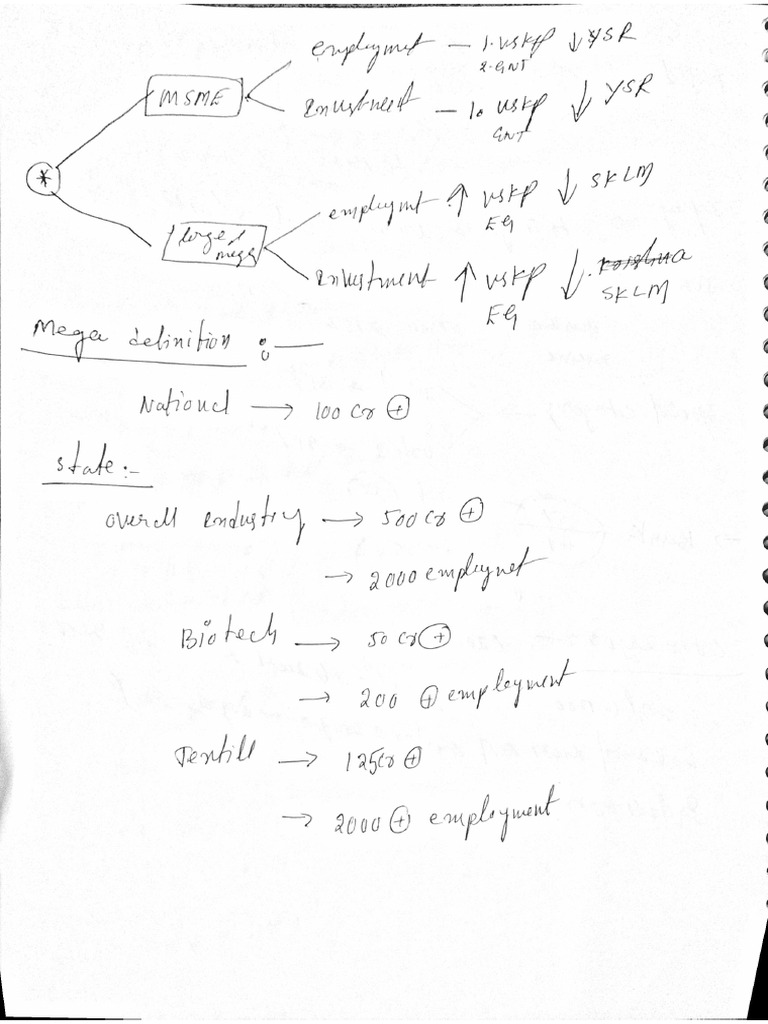 employmet — 1. VSKP ↓ YSR
2. GNT
MSME
Envustment — 1. VSKP ↓ YSR
GNT
*
employmt ↑ VSKP ↓ SKLM
EG
large / mega
Envustment ↑ VSKP ↓
EG SKLM
Mega definition : —
National → 100 Cr ⊕
State :-
Overall endustry → 500 Cr ⊕
→ 2000 employmet
Biotech → 50 Cr ⊕
→ 200 ⊕ employment
→ 125 Cr ⊕
→ 2000 ⊕ employment